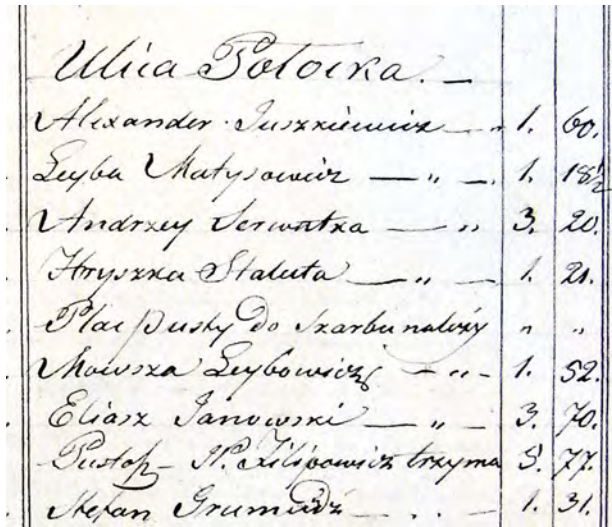 Ulica Połocka. —
Alexander Juszkiewicz — „ 1. 60.
Leyba Matysowicz — „ — 1. 18½
Andrzey Serwutka — „ 3. 20.
Hryszka Staluta — „ — 1. 21.
Plac pusty do Skarbu należy „ „
Mowsza Leybowicz — „ — 1. 52.
Eliasz Janowski — „ — 3. 70.
Pustosz — N. Filipowicz trzyma 5. 77.
Stefan — . . — 1. 31.